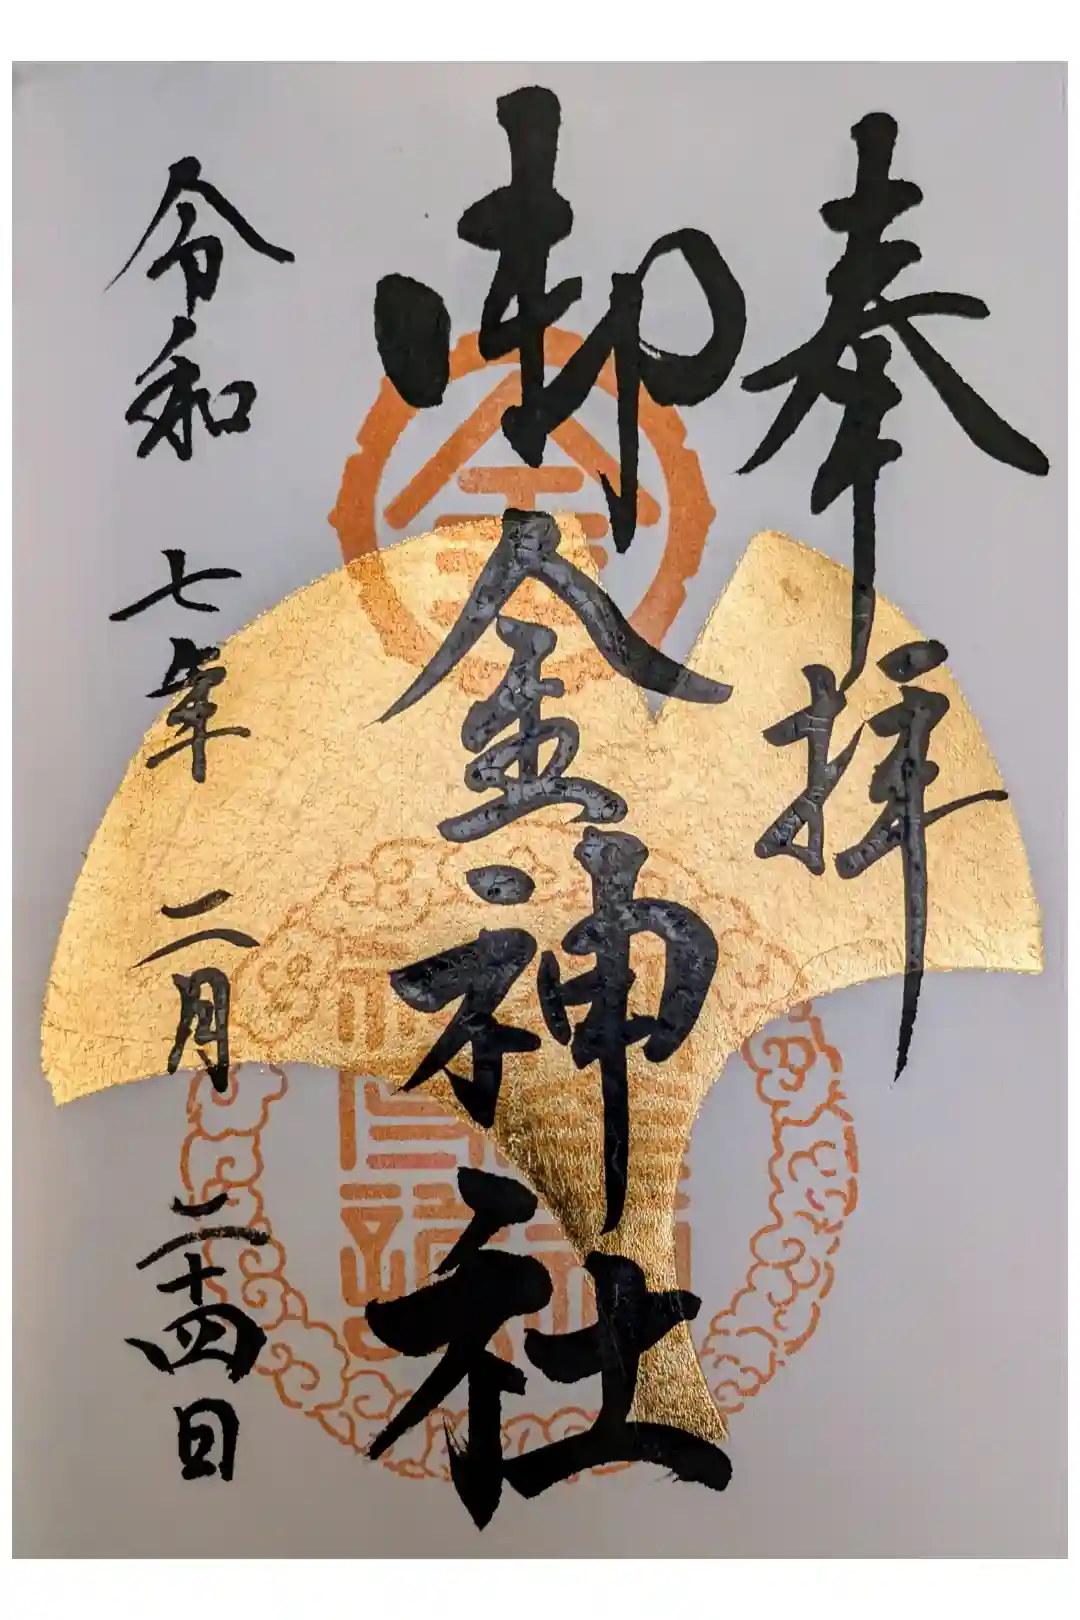 奉拝
御金神社
令和七年二月二十四日